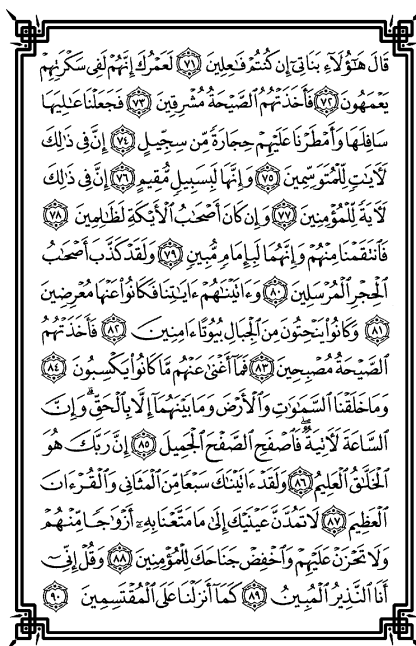 قَالَ هَٰٓؤُلَآءِ بَنَاتِيٓ إِن كُنتُمْ فَٰعِلِينَ ٧١ لَعَمْرُكَ إِنَّهُمْ لَفِى سَكْرَتِهِمْ
يَعْمَهُونَ ٧٢ فَأَخَذَتْهُمُ ٱلصَّيْحَةُ مُشْرِقِينَ ٧٣ فَجَعَلْنَا عَٰلِيَهَا
سَافِلَهَا وَأَمْطَرْنَا عَلَيْهِمْ حِجَارَةً مِّن سِجِّيلٍ ٧٤ إِنَّ فِى ذَٰلِكَ
لَءَايَٰتٍ لِّلْمُتَوَسِّمِينَ ٧٥ وَإِنَّهَا لَبِسَبِيلٍ مُّقِيمٍ ٧٦ إِنَّ فِى ذَٰلِكَ
لَءَايَةً لِّلْمُؤْمِنِينَ ٧٧ وَإِن كَانَ أَصْحَٰبُ ٱلْأَيْكَةِ لَظَٰلِمِينَ ٧٨
فَٱنتَقَمْنَا مِنْهُمْ وَإِنَّهُمَا لَبِإِمَامٍ مُّبِينٍ ٧٩ وَلَقَدْ كَذَّبَ أَصْحَٰبُ
ٱلْحِجْرِ ٱلْمُرْسَلِينَ ٨٠ وَءَاتَيْنَٰهُمْ ءَايَٰتِنَا فَكَانُوا۟ عَنْهَا مُعْرِضِينَ
٨١ وَكَانُوا۟ يَنْحِتُونَ مِنَ ٱلْجِبَالِ بُيُوتًا ءَامِنِينَ ٨٢ فَأَخَذَتْهُمُ
ٱلصَّيْحَةُ مُصْبِحِينَ ٨٣ فَمَآ أَغْنَىٰ عَنْهُم مَّا كَانُوا۟ يَكْسِبُونَ ٨٤
وَمَا خَلَقْنَا ٱلسَّمَٰوَٰتِ وَٱلْأَرْضَ وَمَا بَيْنَهُمَآ إِلَّا بِٱلْحَقِّ ۗ وَإِنَّ
ٱلسَّاعَةَ لَءَاتِيَةٌ ۖ فَٱصْفَحِ ٱلصَّفْحَ ٱلْجَمِيلَ ٨٥ إِنَّ رَبَّكَ هُوَ
ٱلْخَلَّٰقُ ٱلْعَلِيمُ ٨٦ وَلَقَدْ ءَاتَيْنَٰكَ سَبْعًا مِّنَ ٱلْمَثَانِى وَٱلْقُرْءَانَ
ٱلْعَظِيمَ ٨٧ لَا تَمُدَّنَّ عَيْنَيْكَ إِلَىٰ مَا مَتَّعْنَا بِهِۦٓ أَزْوَٰجًا مِّنْهُمْ
وَلَا تَحْزَنْ عَلَيْهِمْ وَٱخْفِضْ جَنَاحَكَ لِلْمُؤْمِنِينَ ٨٨ وَقُلْ إِنِّىٓ
أَنَا ٱلنَّذِيرُ ٱلْمُبِينُ ٨٩ كَمَآ أَنزَلْنَا عَلَى ٱلْمُقْتَسِمِينَ ٩٠